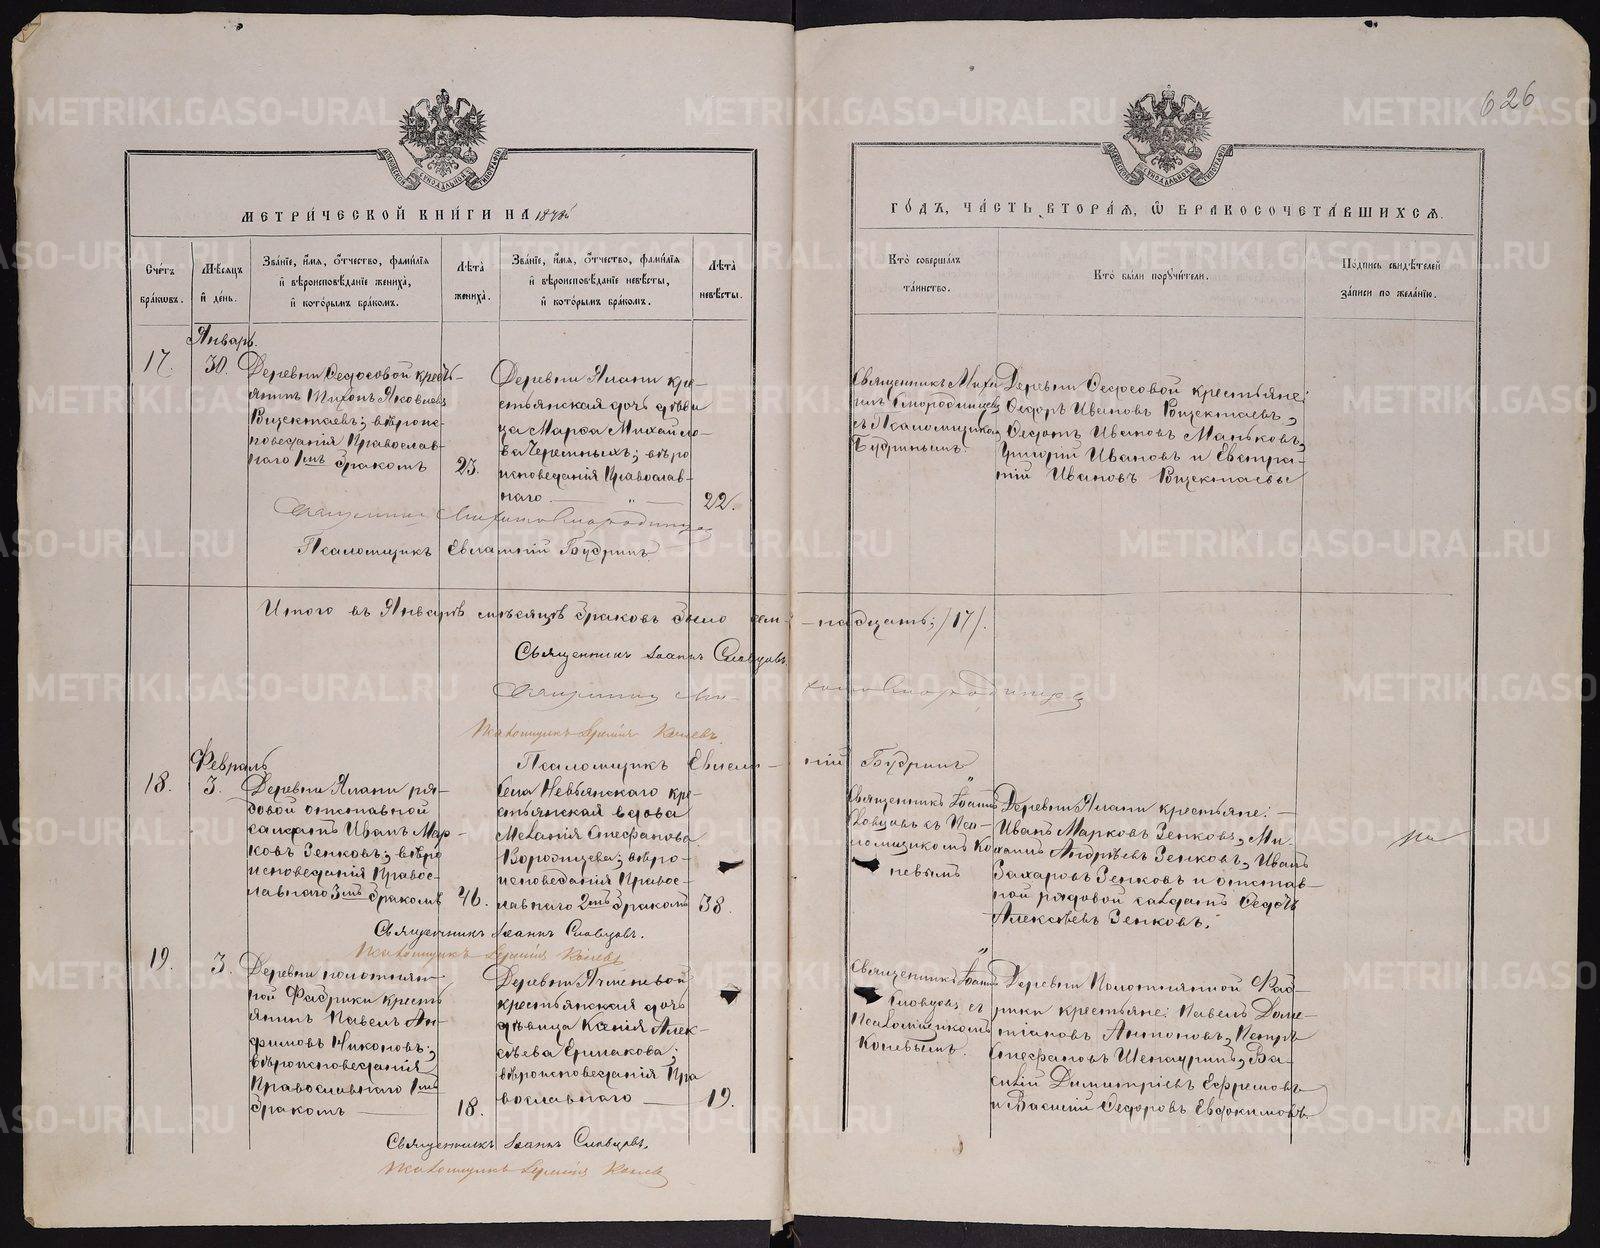 626
МЕТРИЧЕСКОЙ КНИГИ НА
ГОДЪ, ЧАСТЬ ВТОРАЯ, Ѡ БРАКОСОЧЕТАВШИХСЯ.
Счетъ браковъ.
Мѣсяцъ и день.
Званіе, имя, отчество, фамилія
и вѣроисповѣданіе жениха,
и которымъ бракомъ.
Лѣта жениха.
Званіе, имя, отчество, фамилія
и вѣроисповѣданіе невѣсты,
и которымъ бракомъ.
Лѣта невѣсты.
Кто совершалъ
таинство.
Кто были поручители.
Подпись свидѣтелей
записи по желанію.
Январь.
17.
30.
Деревни Ѳедосовой кресть-
янинъ Тихонъ Яковлевъ
вѣроис-
поведанія Православ-
наго 1мъ бракомъ
23.
Деревни Ялани кре-
стьянская дочь дѣви
ца Марѳа Михайло-
ва Черемныхъ; вѣро
исповеданія Православ-
наго
22.
Священникъ Миха
илъ Смородинцевъ
съ Псаломщикомъ
Будринымъ.
Деревни Ѳедосовой крестьяне:
Ѳедоръ Ивановъ
Ѳедотъ Ивановъ Маньковъ,
Григорій Ивановъ и Евстра-
тій Ивановъ
Священникъ Михаилъ Смородинцевъ
Псаломщикъ Евлампій Будринъ
Итого въ Январѣ мѣсяцѣ браковъ было сем-
надцать; /17/.
Священникъ Іоаннъ Словцовъ
Священникъ Ми-
хаилъ Смородинцевъ
Псаломщикъ Коневъ.
Псаломщикъ Евлам-
пій Будринъ
Февраль
18.
3.
Деревни Ялани ря-
довой отставной
салдатъ Иванъ Мар-
ковъ Зенковъ; вѣро
исповеданія Правос-
лавнаго 3мъ бракомъ
46.
Села Невьянскаго кре-
стьянская вдова
Меланія Стефанова
Воробьева; вѣро-
исповеданія Правос-
лавнаго 2мъ бракомъ
38.
Священникъ Іоаннъ
Словцовъ съ Пса-
ломщикомъ Ко-
невымъ
Деревни Ялани крестьяне:
Иванъ Марковъ Зенковъ, Ми-
хаилъ Андрѣевъ Зенковъ, Иванъ
Захаровъ Зенковъ и отстав-
ной рядовой салдатъ Ѳедотъ
Алексѣевъ Зенковъ.
Священникъ Іоаннъ Словцовъ.
Псаломщикъ Коневъ
19.
3.
Деревни полотнян-
ной Фабрики кресть
янинъ Павелъ Ан-
фимовъ Никоновъ;
вѣроисповеданія
Православнаго 1мъ
бракомъ
18.
Деревни Ячменевой
крестьянская дочь
дѣвица Ксенія Алек-
сѣева Ермакова;
вѣроисповеданія Пра
вославнаго
19.
Священникъ Іоаннъ
Словцовъ съ
Псаломщикомъ
Коневымъ.
Деревни Полотнянной Фаб-
рики крестьяне: Павелъ Доме-
тіановъ Антоновъ, Петръ
Стефановъ Шепаринъ, Ва-
силій Димитріевъ Ефремовъ
и Василій Ѳедоровъ Евдокимовъ.
Священникъ Іоаннъ Словцовъ.
Псаломщикъ Коневъ
METRIKI.GASO-URAL.RU